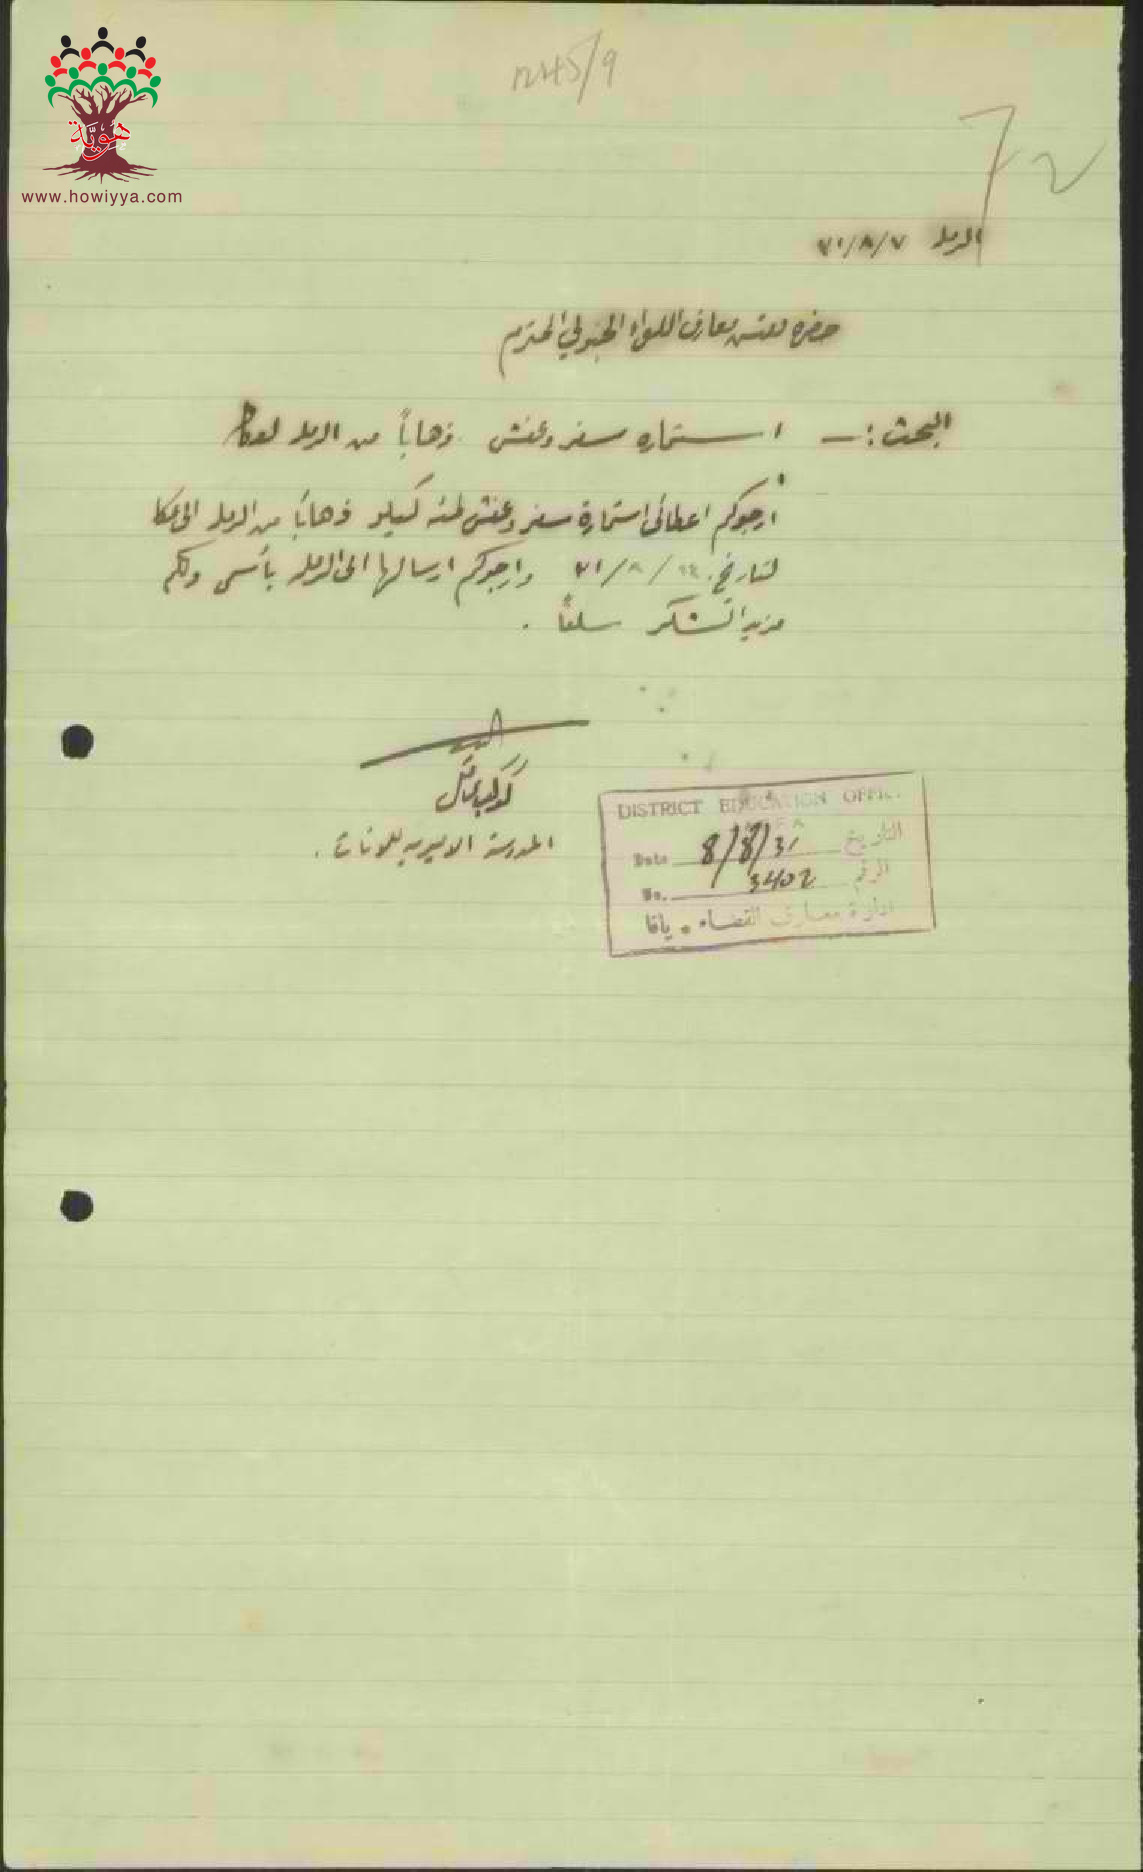 هويّة
www.howiyya.com
1245/9
72
الرملة ٣١/٨/٧
حضرة مفتش معارف اللواء الجنوبي المحترم
البحث :— استمارة سفر وعفش ذهاباً من الرملة لعكا
ارجوكم اعطائي استمارة سفر وعفش لمئة كيلو ذهاباً من الرملة الى عكا
لتاريخ ٣١/٨/ وارجوكم ارسالها الى الرملة بأسمي ولكم
مزيد التشكر سلفاً .
المدرسة الاميرية للبنات .
DISTRICT EDUCATION OFFICE
Date 8/8/31 التاريخ
No. 3402 الرقم
ادارة معارف القضاء . يافا